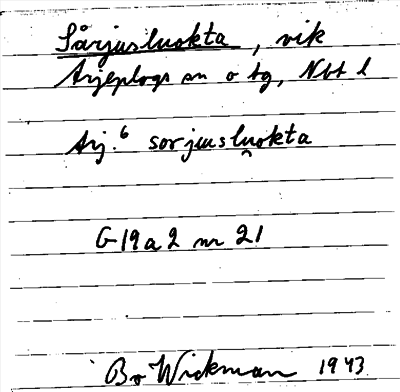 Sårjusluokta, vik
Arjeplogs sn o tg, Nbt l
Arj.⁶ sorjuslu̯okta
G19a2 nr 21
Bo Wickman 1943